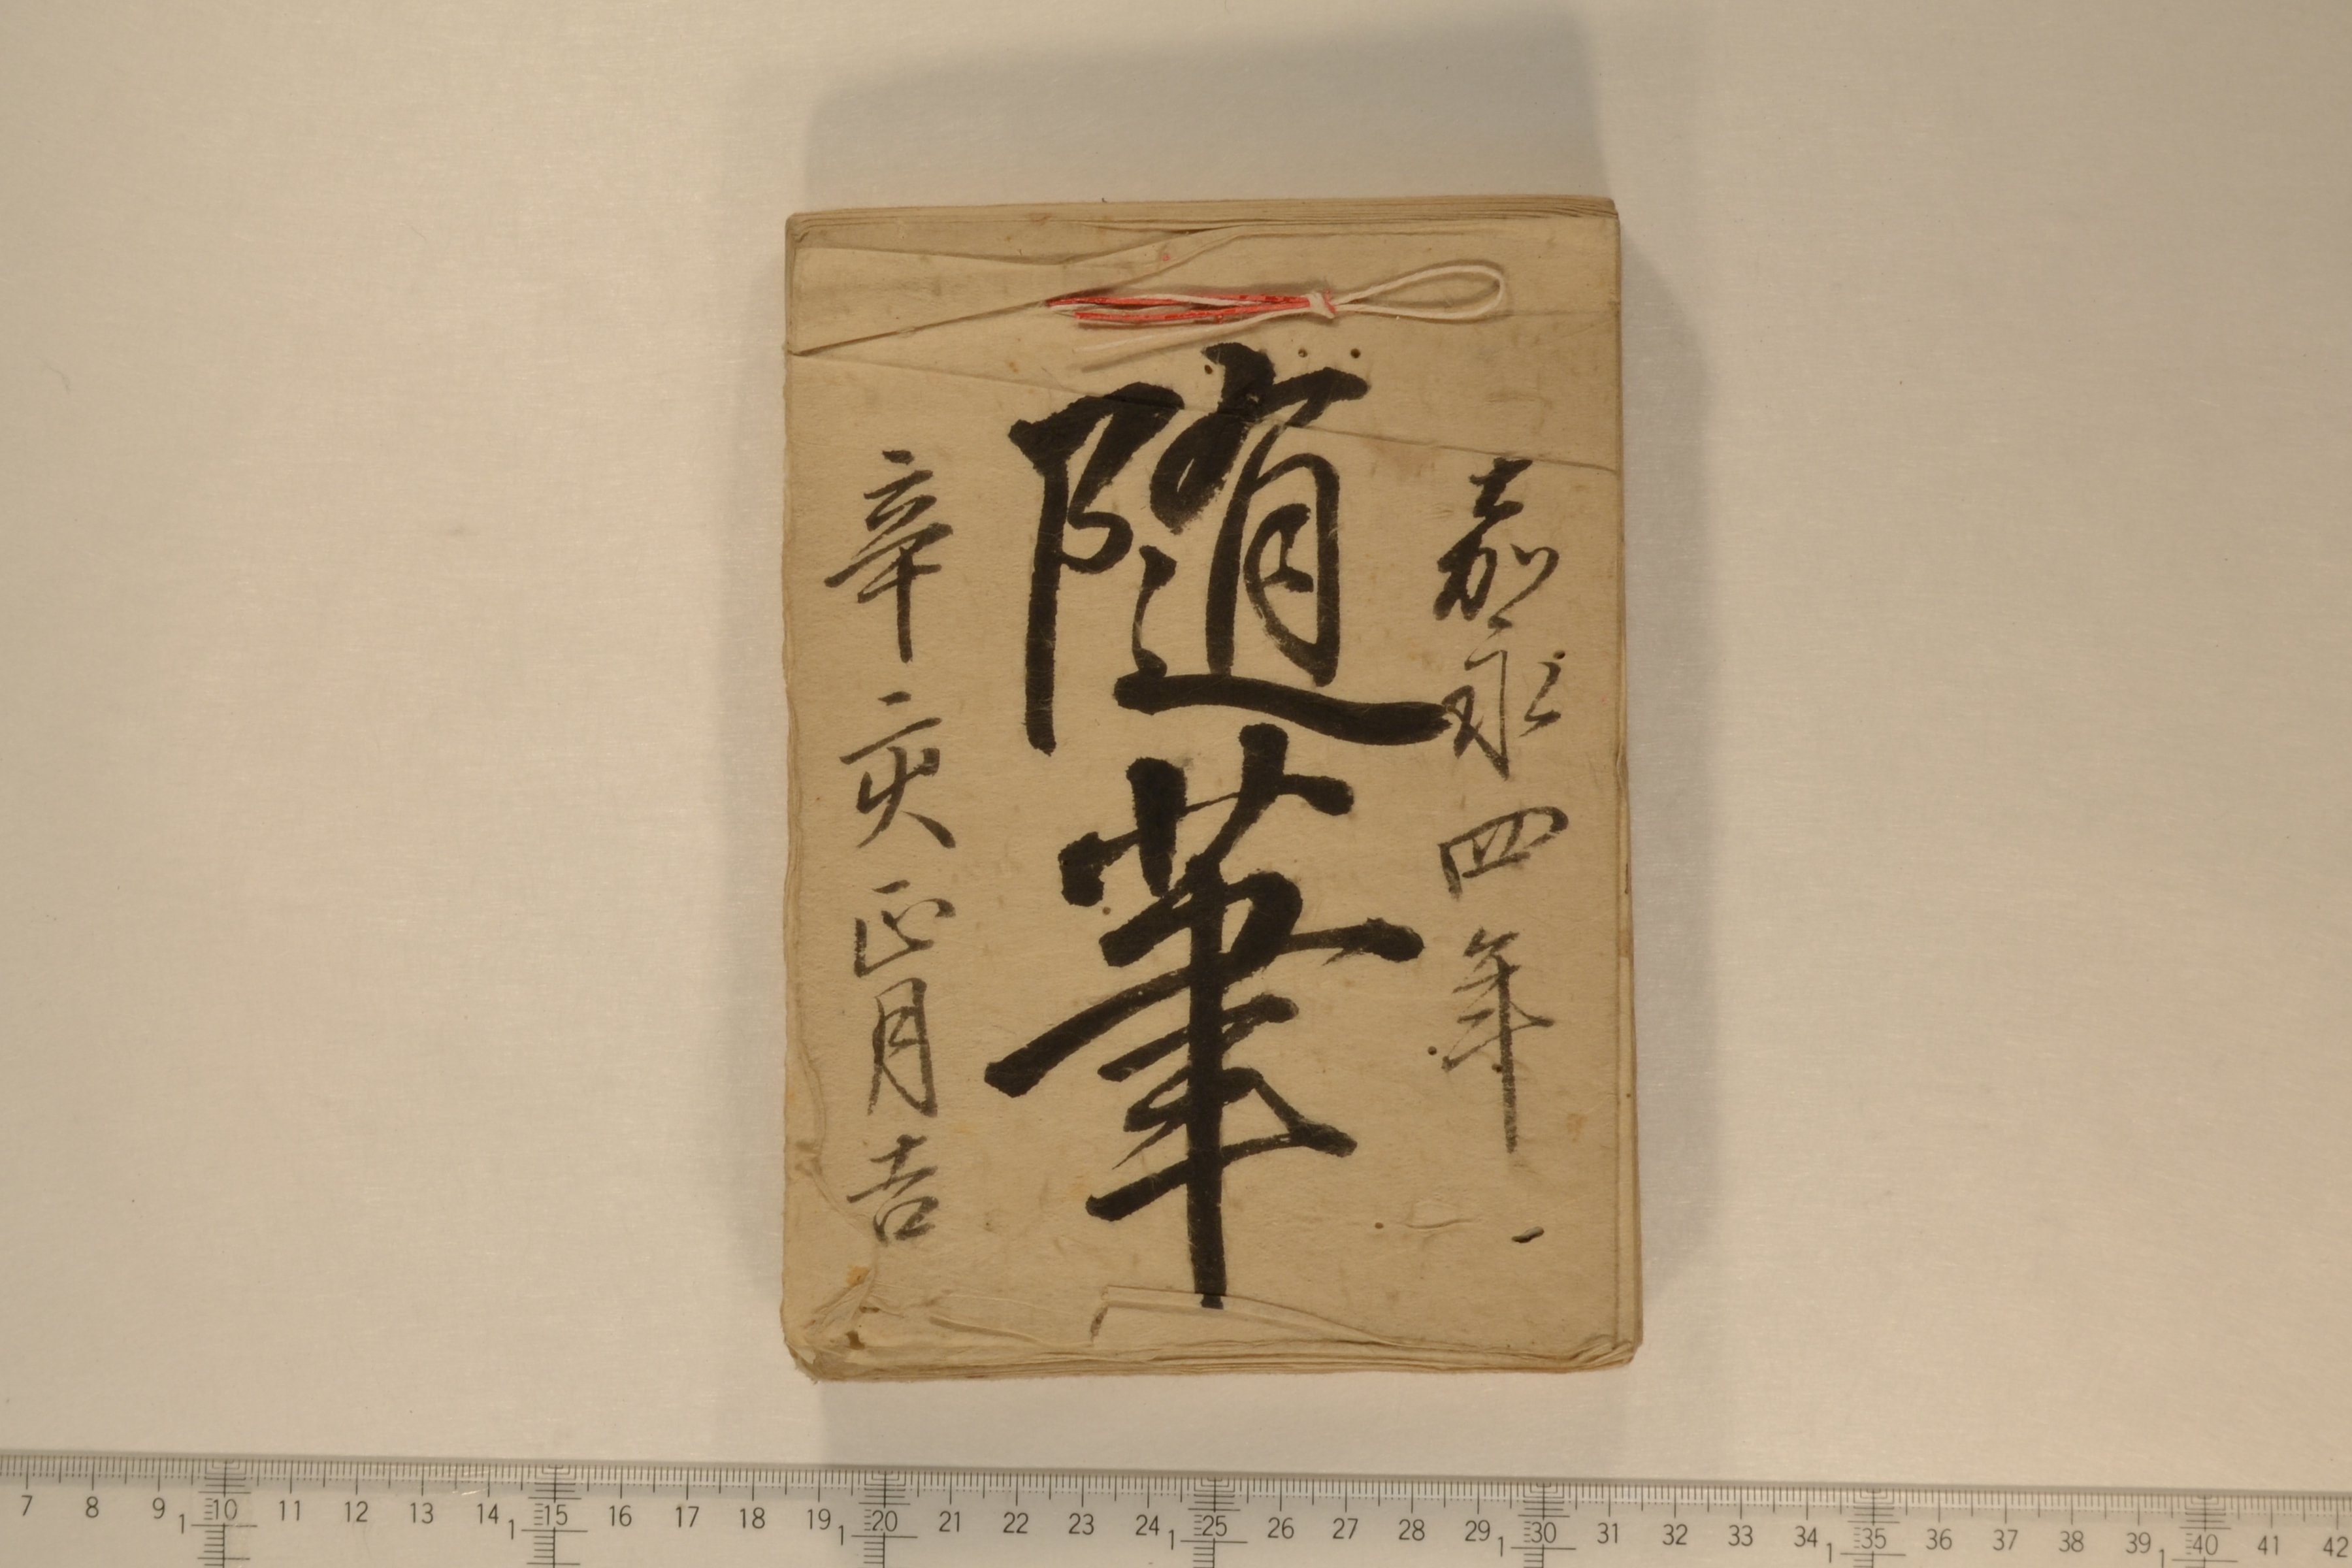 嘉永四年
随筆
辛亥正月吉
7 8 9 10 11 12 13 14 15 16 17 18 19 20 21 22 23 24 25 26 27 28 29 30 31 32 33 34 35 36 37 38 39 40 41 42
1 1 1 1 1 1 1